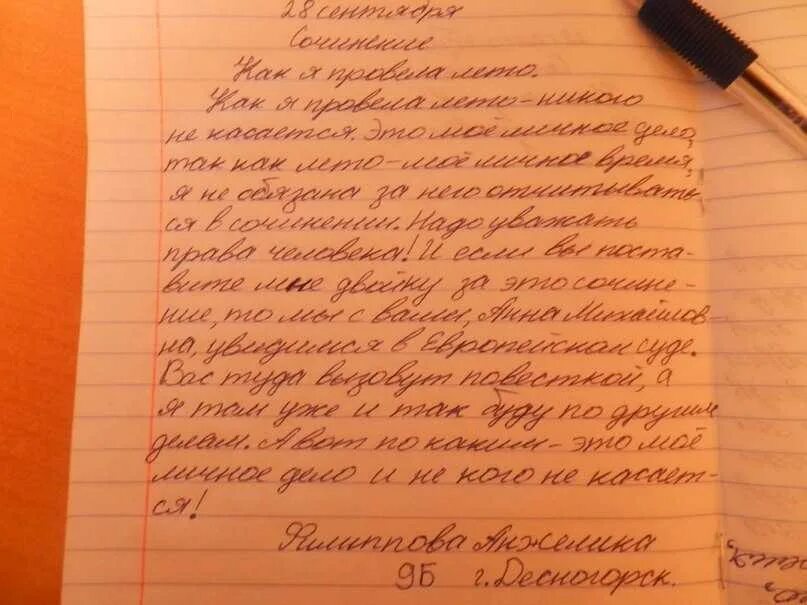 28 сентября
Сочинение
Как я провела лето.
Как я провела лето - никого
не касается. Это моё личное дело,
так как лето - моё личное время,
я не обязана за него отчитывать-
ся в сочинении. Надо уважать
права человека! И если вы поста-
вите мне двойку за это сочине-
ние, то мы с вами, Анна Михайлов-
на, увидимся в Европейском суде.
Вас туда вызовут повесткой, а
я там уже и так буду по другим
делам. А вот по каким - это моё
личное дело и не кого не касает-
ся!
Филиппова Анжелика
9Б г. Десногорск.